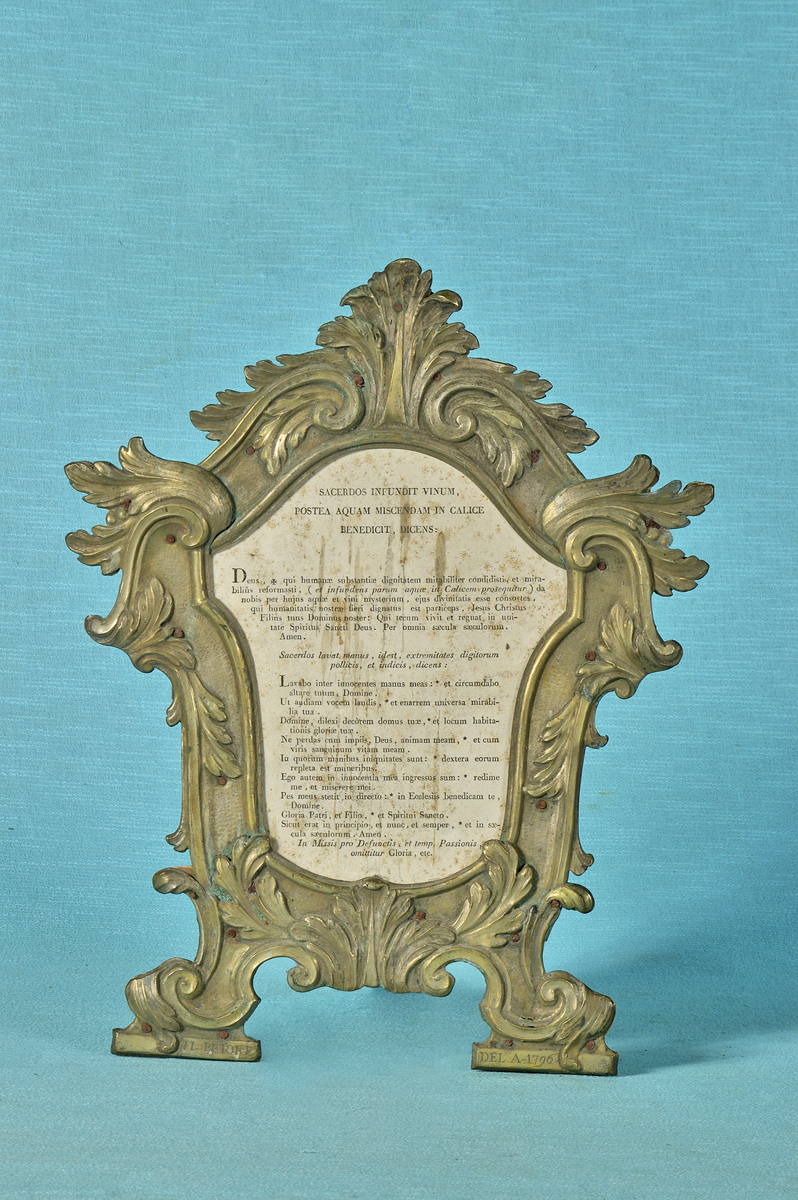 SACERDOS INFUNDIT VINUM,
POSTEA AQUAM MISCENDAM IN CALICE
BENEDICIT, DICENS:
Deus, ✠ qui humanæ substantiæ dignitatem mirabiliter condidisti, et mira-
biliùs reformasti, (et infundens parum aquæ in Calicem, prosequitur) da
nobis per hujus aquæ et vini mysterium, ejus divinitatis esse consortes,
qui humanitatis nostræ fieri dignatus est particeps, Jesus Christus
Filius tuus Dominus noster: Qui tecum vivit et regnat in uni-
tate Spiritus Sancti Deus. Per omnia sæcula sæculorum.
Amen.
Sacerdos lavat manus, idest, extremitates digitorum
pollicis, et indicis, dicens:
Lavabo inter innocentes manus meas: * et circumdabo
altare tuum, Domine.
Ut audiam vocem laudis, * et enarrem universa mirabi-
lia tua.
Domine, dilexi decorem domus tuæ, * et locum habita-
tionis gloriæ tuæ.
Ne perdas cum impiis, Deus, animam meam, * et cum
viris sanguinum vitam meam.
In quorum manibus iniquitates sunt: * dextera eorum
repleta est muneribus.
Ego autem in innocentia mea ingressus sum: * redime
me, et miserere mei.
Pes meus stetit in directo: * in Ecclesiis benedicam te,
Domine.
Gloria Patri, et Filio, * et Spiritui Sancto.
Sicut erat in principio, et nunc, et semper, * et in sæ-
cula sæculorum. Amen.
In Missis pro Defunctis, et temp. Passionis,
omittitur Gloria, etc.
DEL A-1796